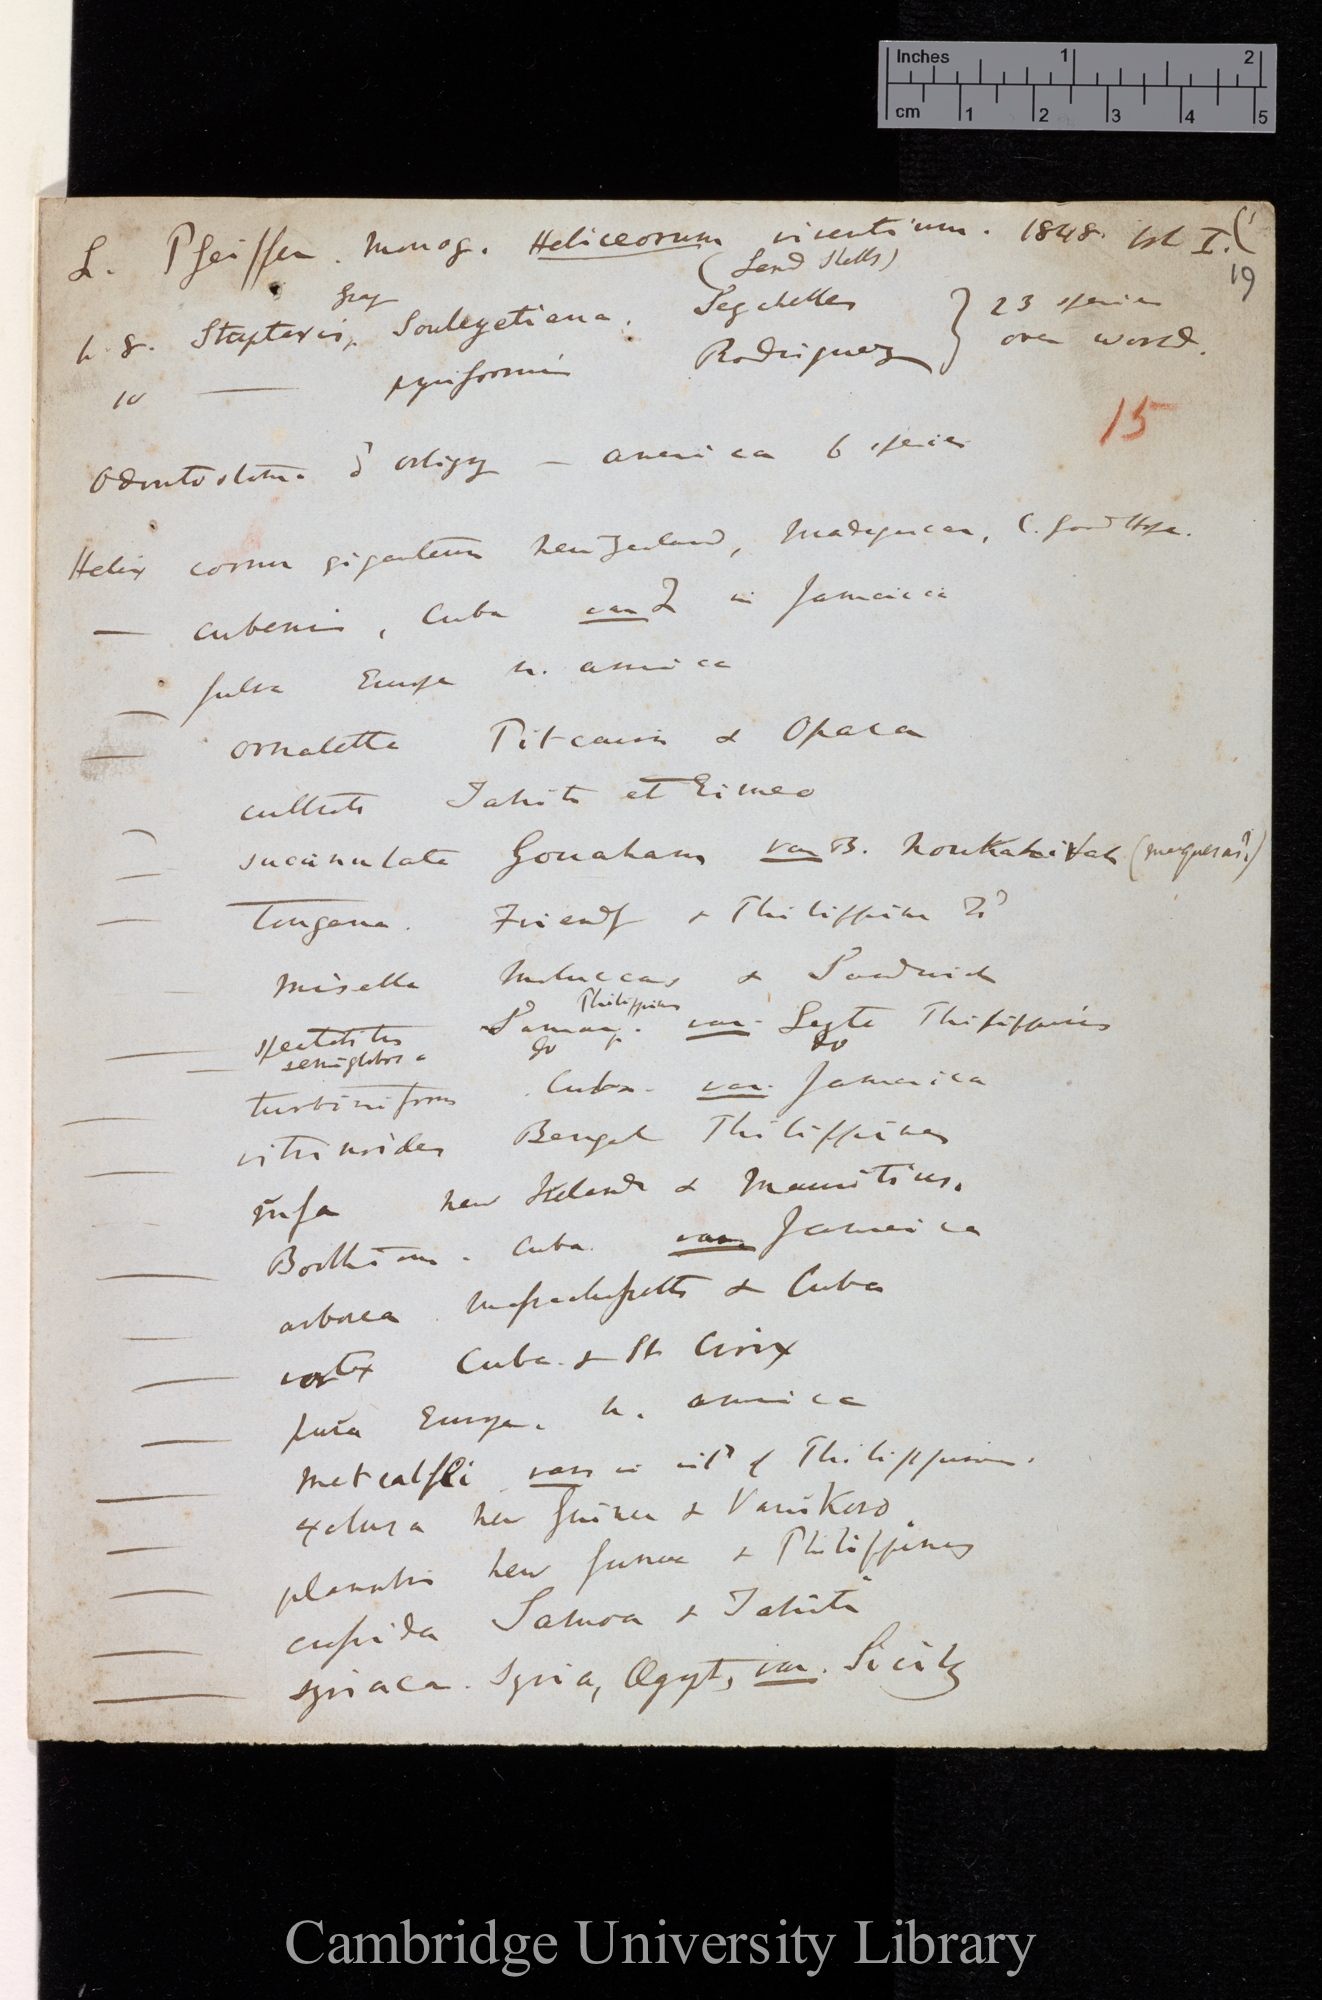 Inches 1 2
cm 1 2 3 4 5
L. Pfeiffer. Monog. Heliceorum viventium. 1848. Vol I. (1
(Land Shells)
19
Gray
Streptaxis, Souleyetiana. Seychelles
— pyriformis Rodriguez } 23 species over world.
15
Odontostoma d'Orbigny — America 6 species
Helix cornu giganteum New Zealand, Madagascar, C. Good Hope.
— cubensis, Cuba var in Jamaica
— fulva Europe N. America
— ornatella Pitcairn & Opara
cultrata Tahiti et Eimeo
— Gouaham var B. (Marquesas?)
— tongana. Friendly & Philippine
misella Moluccas & Sandwich
Philippines
— Samar. var. Leyte Philippines
— semiglobosa do do
— turbiniformis Cuba. var. Jamaica
— vitrinoides Bengal Philippines
— rufa New Ireland & Mauritius.
— Boothiana. Cuba. var Jamaica
— arborea Massachusetts & Cuba
— vortex Cuba. & St Croix
— pura Europe. N. America
— Metcalfei vars in Philippines.
— exclusa New Guinea & Vanikoro
— planulata New Guinea & Philippines
— Samoa & Tahiti
— syriaca. Syria, Egypt, var. Sicily
Cambridge University Library